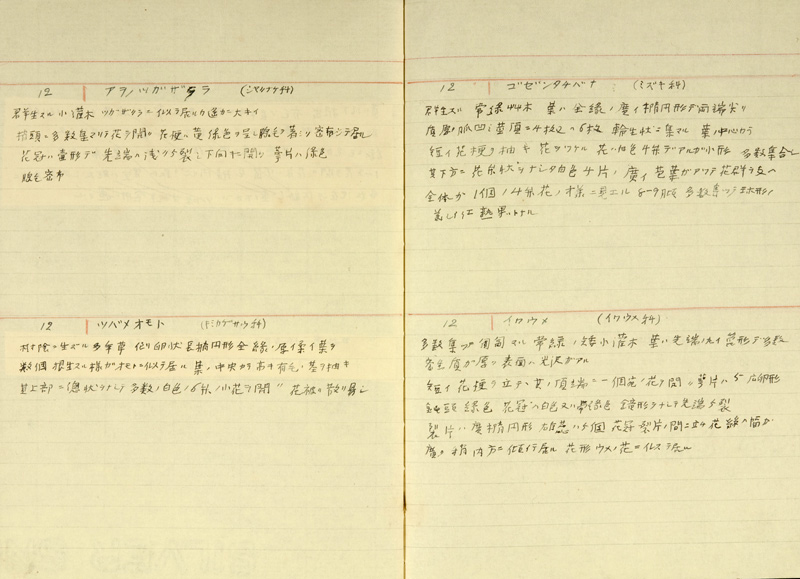 12 アオノツガザクラ (シャクナゲ科)
群生スル小灌木 ツガザクラニ似テ居ルカ遥カニ大キイ
枝頭ニ多数集マリテ花ヲ開ク 花梗ハ黄緑色ヲ呈シ腺毛ヲ密布シテ居ル
花冠ハ壷形デ 先端ハ浅ク5裂シ下向キニ開ク 萼片ハ緑色
腺毛密布
12 ツバメオモト (ユリ科)
村陰ニ生ズル多年草 倒卵状長楕円形全縁ノ厚イ柔イ葉ヲ
数個根生スル様ガオモトニ似テ居ル 葉ノ中央カラ有毛ノ茎ヲ抽キ
其上部ニ総状ヲナシテ多数ノ白色ノ6弁ノ小花ヲ開ク 花被ハ散リ易シ
12 ゴゼンタチバナ (ミズキ科)
群生スル 常緑草木 葉ハ全縁ノ廣イ楕円形デ両端尖リ
質厚ク脈凹ミ茎頂ニ4枚又ハ6枚 輪生状ニ集マル 葉ノ中心カラ
短イ花梗ヲ抽キ 花ヲツケル 花ハ白色4弁デアルガ小形 多数集合シ
其下方ニ花弁状ヲナシタ白色4片ノ廣イ苞葉ガアツテ花群ヲ支ヘ
全体ガ1個ノ4弁花ノ様ニ見エル 8-9月頃 多数集ツテ球形ノ
美シイ紅熟果ヲツケル
12 イワウメ (イワウメ科)
多数集ツテ匍匐スル常緑ノ矮小灌木 葉ハ先端ノ丸イ箆形デ多数
密生質ガ厚ク表面ハ光沢ガアル
短イ花梗ヲ立テ 其ノ頂端ニ一個宛ノ花ヲ開ク 萼片ハ5 広卵形
鈍頭緑色 花冠ハ白色又ハ帯緑色 鐘形ヲナシテ先端5裂
裂片ハ廣楕円形 雄蕊ハ5個 花冠裂片ノ間ニ立チ花絲ハ筒ガ
廣ク稍内方ニ傾イテ居ル 花形ウメノ花ニ似テ居ル